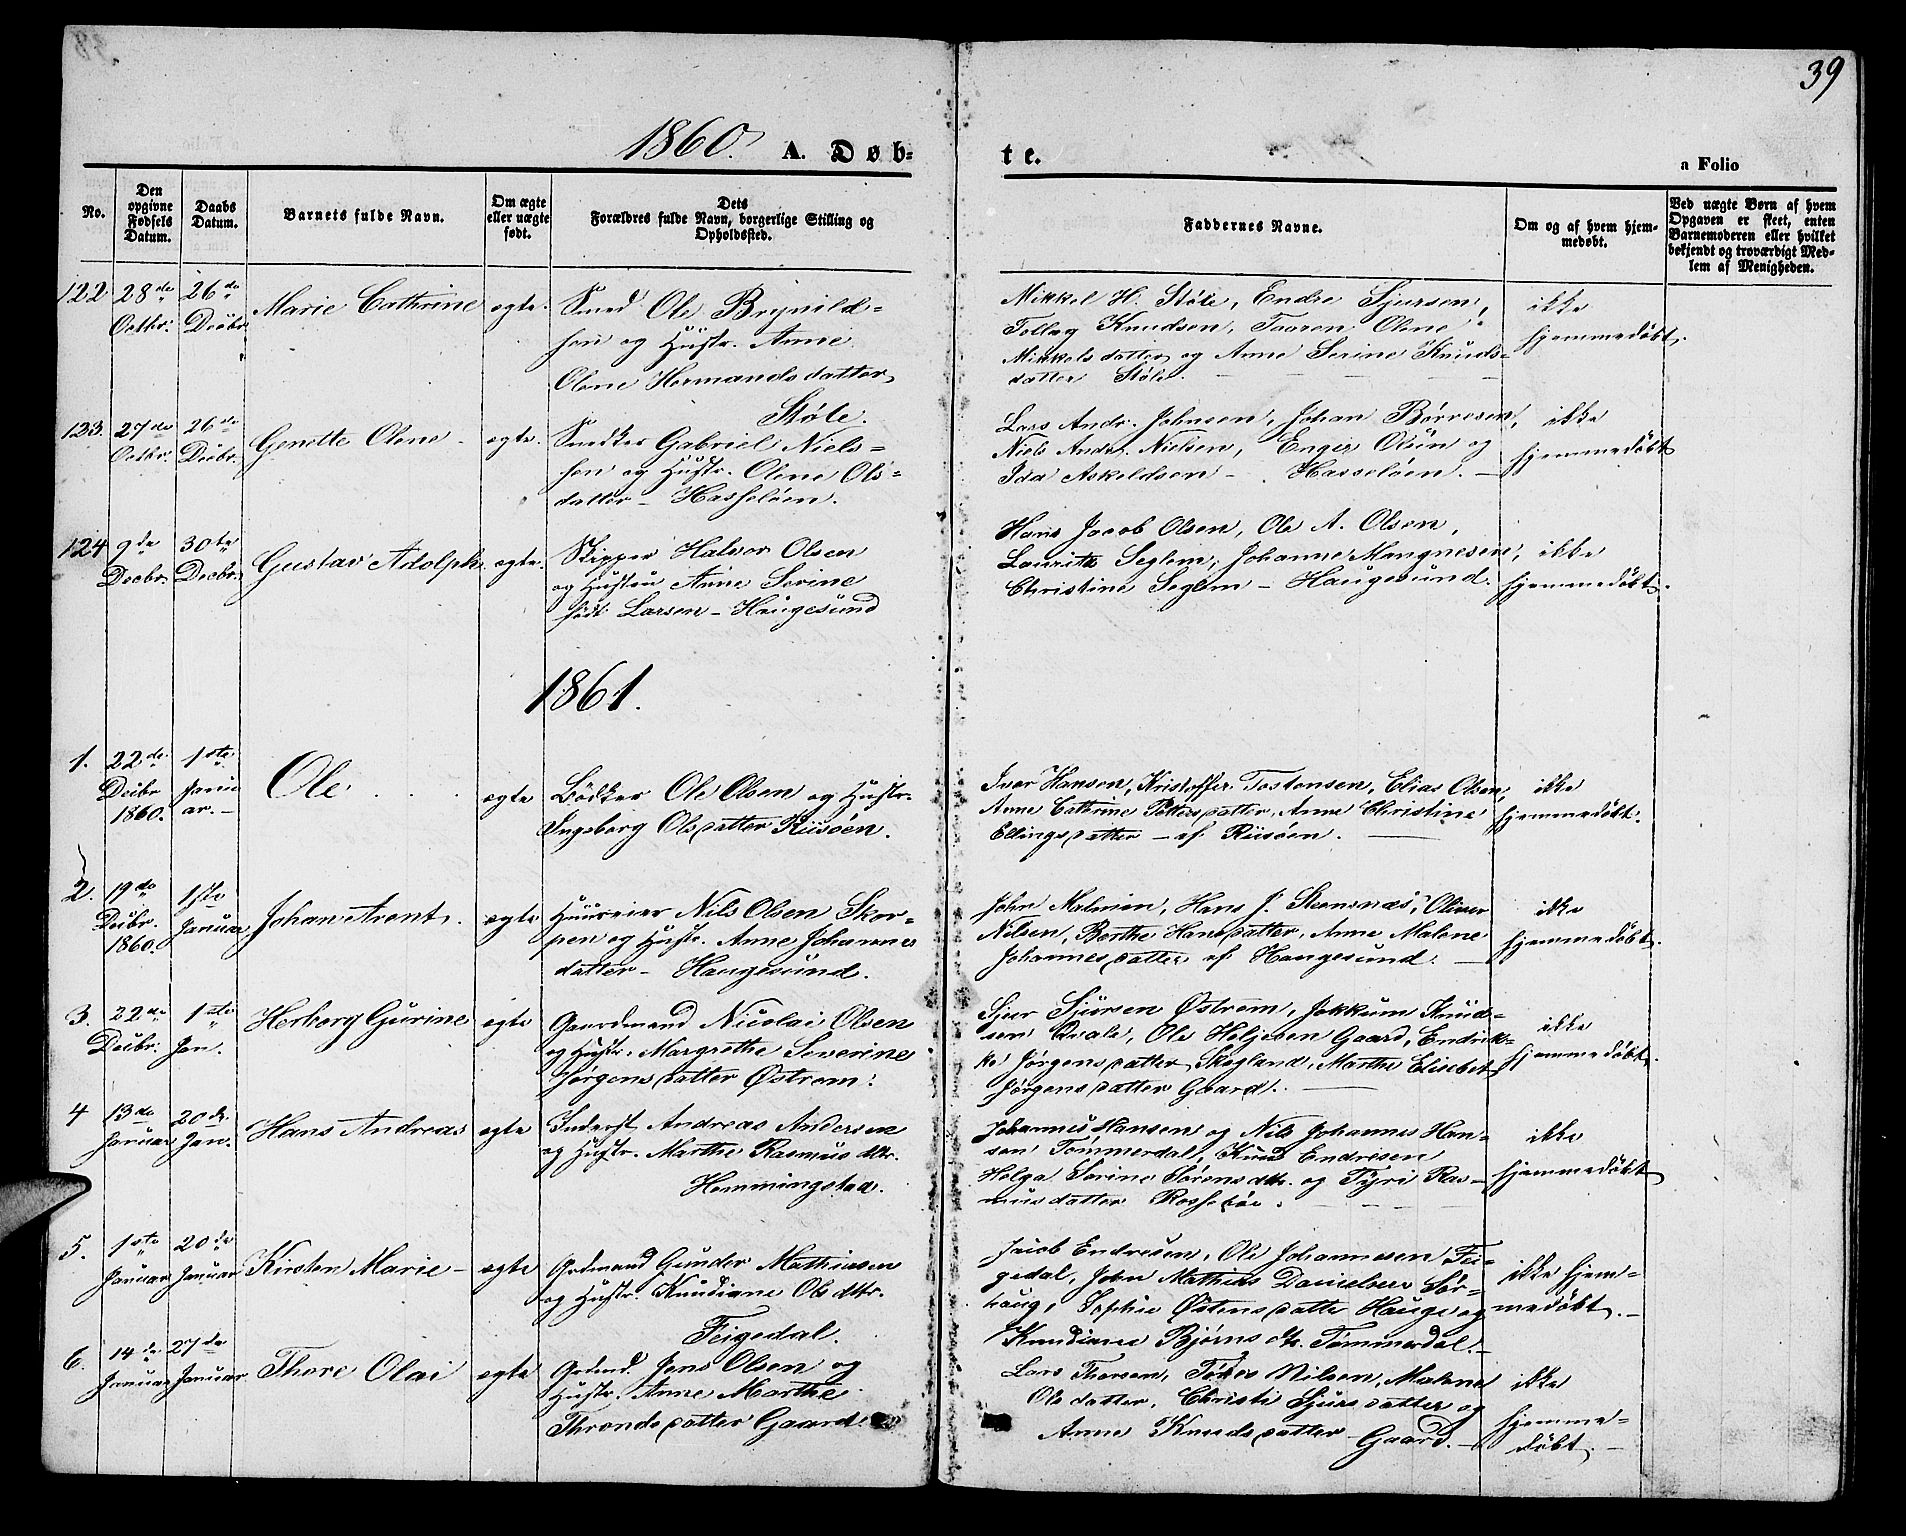 39
1860. A. Døb-
te.
a Folio
No.
Den opgivne Fødsels Datum.
Daabs Datum.
Barnets fulde Navn.
Om ægte eller uægte født.
Dets Forældres fulde Navn, borgerlige Stilling og Opholdssted.
Faddernes Navne.
Om og af hvem hjem-
medøbt.
Ved uægte Børn af hvem
Opgaven er skeet, enten
Barnemoderen eller hvilket
bekjendt og troværdigt Med-
lem af Menigheden.
122 28de Octbr. 26de Decbr. Marie Cathrine egte.
Smed Ole Brynild-
sen og Hustr. Anne
Olene Hermandsdatter
Støle.
Mikkel H. Støle, Endre Sjursen,
Tollag Knudsen, Taaren Olene
Mikkelsdatter og Anne Serine Knuds-
datter Støle.
ikke
hjemmedøbt.
123. 27de Octbr. 26de Decbr. Genette Olene egte.
Snedker Gabriel Niels-
sen og Hustr. Olene Ols-
datter - Hasseløen.
Lars Andr. Johnsen, Johan Børresen,
Niels Andr. Nielsen, Enger Olsen og
Ida Askeldsen - Hasseløen.
ikke
hjemmedøbt
124 9de Decbr. 30te Decbr. Gustav Adolph egte.
Skipper Halvor Olsen
og Hustru Anne Serine
født Larsen - Haugesund
Hans Jacob Olsen, Ole A. Olsen,
Laurits Seglem, Johanne Mangnesen,
Christine Seglem - Haugesund.
ikke
hjemmedøbt.
1861.
1. 22de Decbr 1860. 1ste Janu-
ar. Ole egte
Bødker Ole Olsen og Hustr.
Ingeborg Olsdatter Riisøen.
Iver Hansen, Kristoffer Tostensen, Elias Olsen,
Anne Cathrine Pettersdatter, Anne Christine
Ellingsdatter - af Riisøen.
ikke
hjemmedøbt.
2. 19de Decbr. 1860. 1ste Januar Johan Arent. egte
Huuseier Nils Olsen Skor-
pen og Hustr. Anne Johannes
datter - Haugesund.
John Malmen, Hans J. Steensnæs, Oliver
Nilsen, Berthe Hansdatter, Anne Malene
Johannesdatter af Haugesund.
ikke
hjemmedøbt.
3. 22de Decbr. 1ste Jan. Herborg Gurine egte
Gaardmand Nicolai Olsen
og Hustr. Margrethe Severine
Jørgensdatter Østrem.
Sjur Sjursen Østrem, Jokkum Knud-
sen Qvale, Ole Helgesen Gaard, Endrik-
ke Jørgensdatter Skogland, Marthe Elisebet
Jørgensdatter Gaard.
ikke
hjemmedøbt.
4 13de Januar 20de Jan. Hans Andreas egte
Inderst Andreas Andersen
og Hustr. Marthe Rasmusdtr.
Hemmingstad.
Johannes Hansen og Nils Johannes Han-
sen Tømmerdal, Knud Endresen
Helga Serine Sørensdtr. og Tyri Ras-
musdatter Rossesøe.
ikke
hjemmedøbt
5. 1ste Januar 20de Januar Kirsten Marie - egte
Grdmand Gunder Mathiasen
og Hustr. Knudiane Olsdtr.
Feigedal.
Jacob Endresen, Ole Johannesen Fei-
gedal, John Mathias Danielsen Sør-
haug, Sophie Østensdatter Hauge og
Knudiane Bjørnsdtr. Tømmerdal.
ikke hjem-
medøbt.
6. 14de Januar 27de Januar Thore Olai egte
Grdmd. Jens Olsen og
Hustr. Anne Marthe
Throndsdatter Gaard
Lars Thorsen, Tøres Nilsen, Malene
Olsdatter, Christi Sjursdatter og
Anne Knudsdatter Gaard.
ikke
hjemme-
døbt.